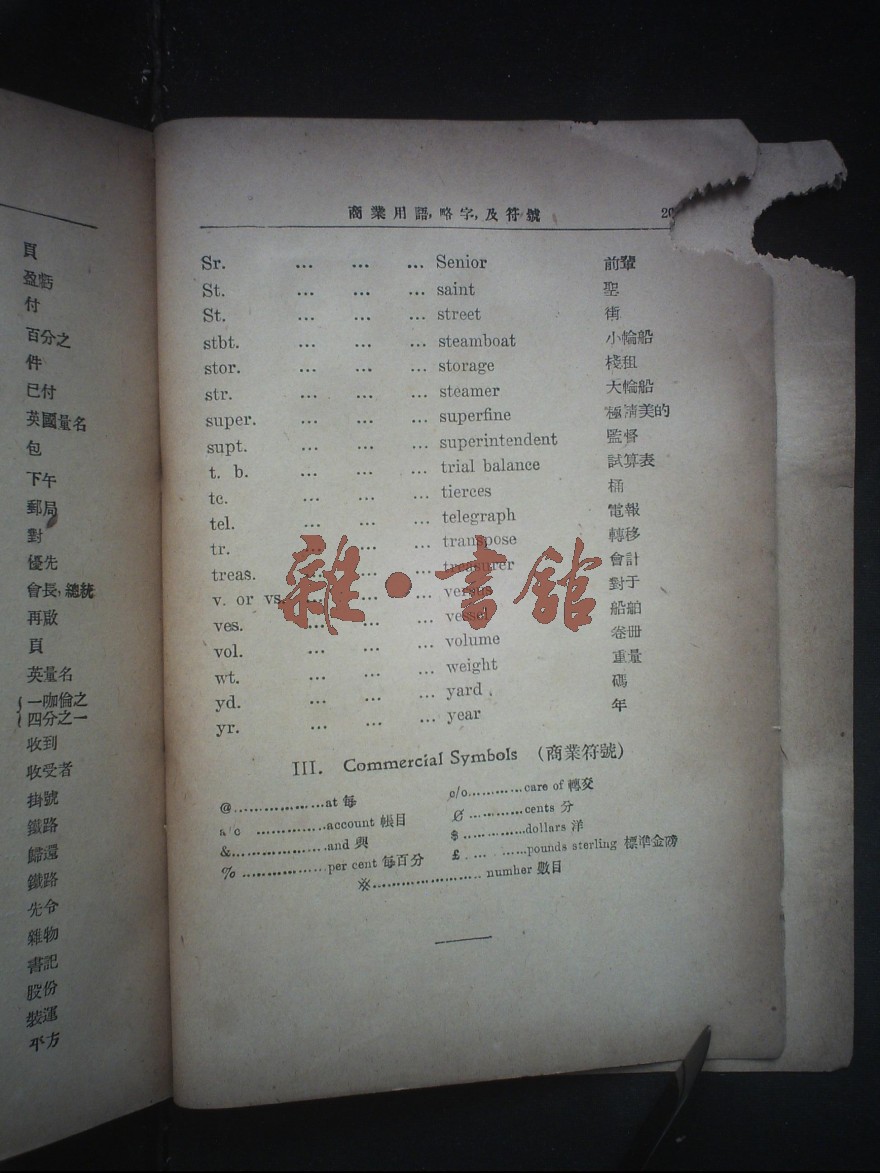 頁
盈虧
付
百分之
件
已付
英國量名
包
下午
郵局
對
優先
會長, 總統
再啟
頁
英量名
一咖倫之
四分之一
收到
收受者
掛號
鐵路
歸還
鐵路
先令
雜物
書記
股份
裝運
平方
商業用語, 略字, 及符號 20
Sr. ... ... ... Senior 前輩
St. ... ... ... saint 聖
St. ... ... ... street 街
stbt. ... ... ... steamboat 小輪船
stor. ... ... ... storage 棧租
str. ... ... ... steamer 大輪船
super. ... ... ... superfine 極淸美的
supt. ... ... ... superintendent 監督
t. b. ... ... ... trial balance 試算表
tc. ... ... ... tierces 桶
tel. ... ... ... telegraph 電報
tr. ... ... ... transpose 轉移
treas. ... ... ... treasurer 會計
v. or vs. ... ... ... versus 對于
ves. ... ... ... vessel 船舶
vol. ... ... ... volume 卷冊
wt. ... ... ... weight 重量
yd. ... ... ... yard 碼
yr. ... ... ... year 年
III. Commercial Symbols (商業符號)
@..................at 每 c/o...........care of 轉交
a/c ..............account 帳目 ₡ ............cents 分
&...................and 與 $ .............dollars 洋
% .................per cent 每百分 £ .............pounds sterling 標準金磅
※...................... number 數目
雜·書館